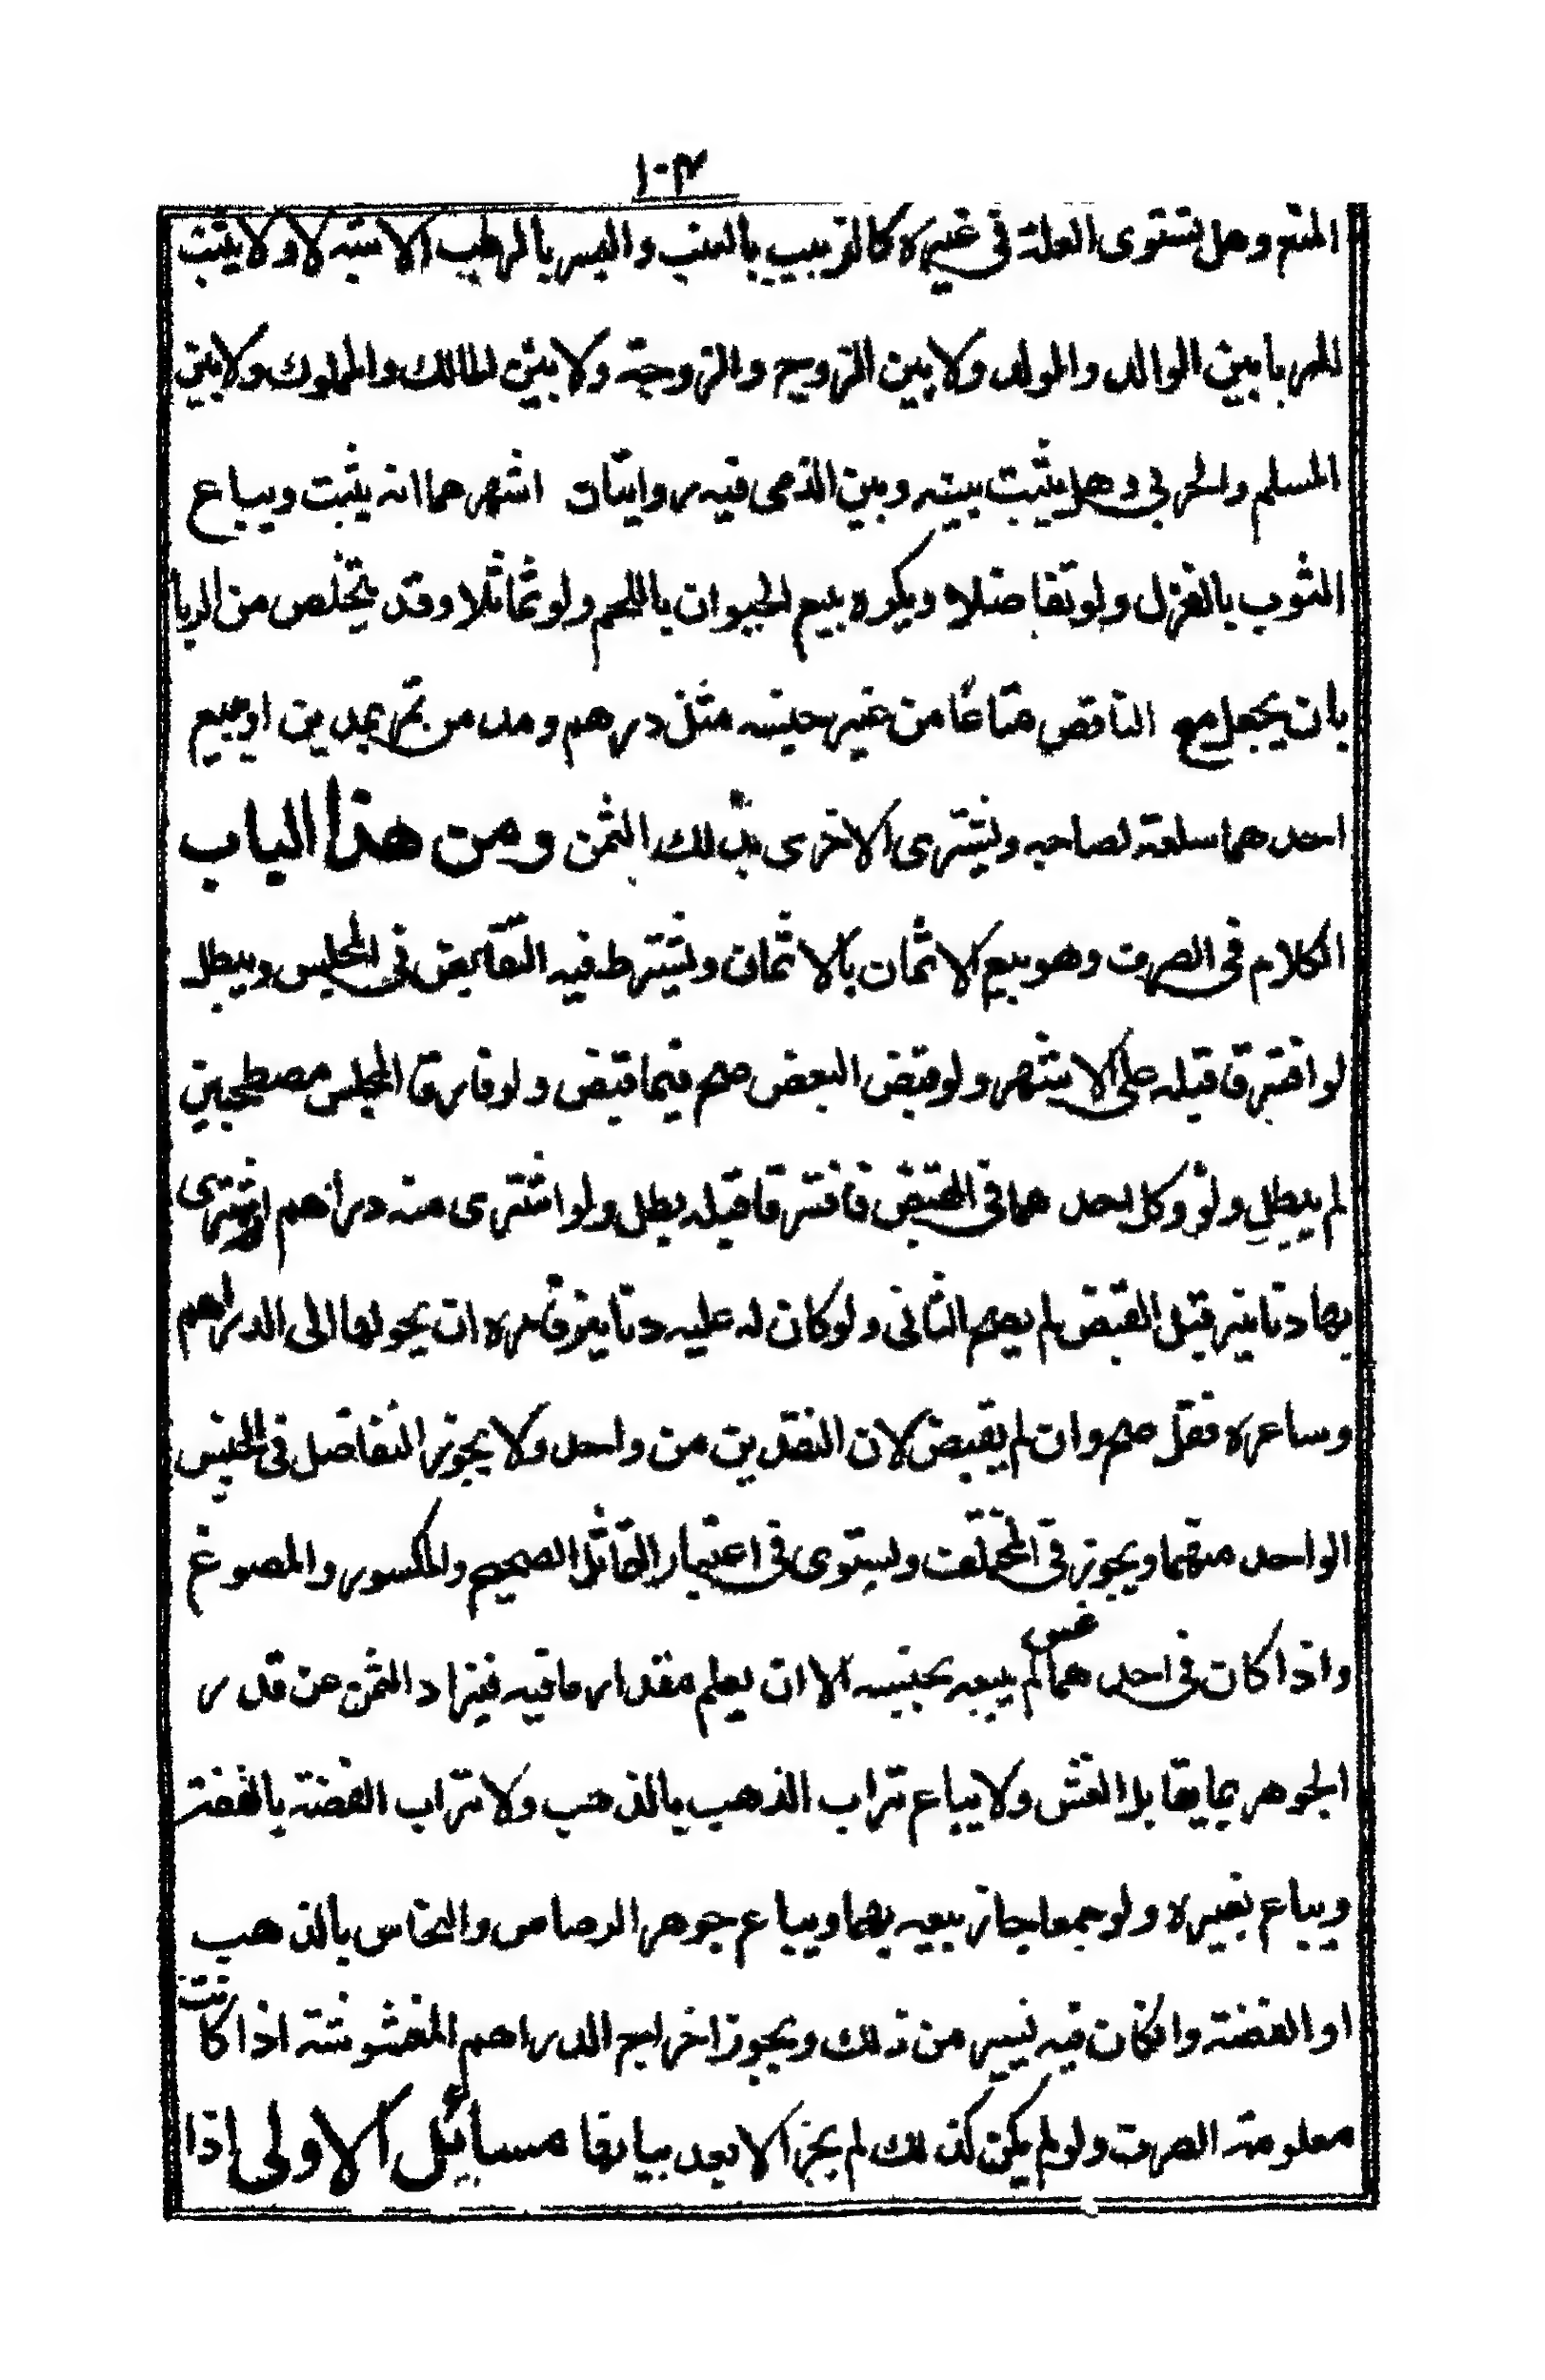 ١٠٣
المنع وهل تستوى العلة فى غيره كالزبيب بالعنب والبسر بالرطب الاشبه لا ولا يثبت
الربا بين الوالد والولد ولا بين الزوج والزوجة ولا بين المالك والمملوك ولا بين
المسلم والحربى وهل يثبت بينه وبين الذمى فيه روايتان اشهرهما انه يثبت ويباع
الثوب بالغزل ولو تفاضلا ويكره بيع الحيوان باللحم ولو تماثلا وقد يتخلص من الربا
بان يجعل مع الناقص متاعا من غير جنسه مثل درهم ومد من تمر بمدين او يبيع
احدهما سلعته لصاحبه ويشترى الاخرى بذلك الثمن ومن هذا الباب
الكلام فى الصرف وهو بيع الاثمان بالاثمان ويشترط فيه التقابض فى المجلس ويبطل
لو افترقا قبله على الاشهر ولو قبض البعض صح فيما قبض ولو فارقا المجلس مصطحبين
لم يبطل ولو وكل احدهما فى القبض فافترقا قبله بطل ولو اشترى منه دراهم اشترى
بها دنانير قبل القبض لم يصح الثانى ولو كان له عليه دنانير فامره ان يحولها الى الدراهم
وساعره فقبل صح وان لم يقبض لان النقدين من واحد ولا يجوز التفاضل فى الجنس
الواحد منهما ويجوز فى المختلف ويستوى فى اعتبار التماثل الصحيح والمكسور والمصوغ
واذا كان فى احدهما غش لم يبعه بجنسه الا ان يعلم مقدار ما فيه فيزاد الثمن عن قدر
الجوهر بما يقابل الغش ولا يباع تراب الذهب بالذهب ولا تراب الفضة بالفضة
ويباع بغيره ولو جمعا جاز بيعه بهما ويباع جوهر الرصاص والنحاس بالذهب
او الفضة وانكان فيه يسير من ذلك ويجوز اخراج الدراهم المغشوشة اذا كانت
معلومة الصرف ولو لم يكن كذلك لم يجز الا بعد بيانها مسائل الاولى اذا